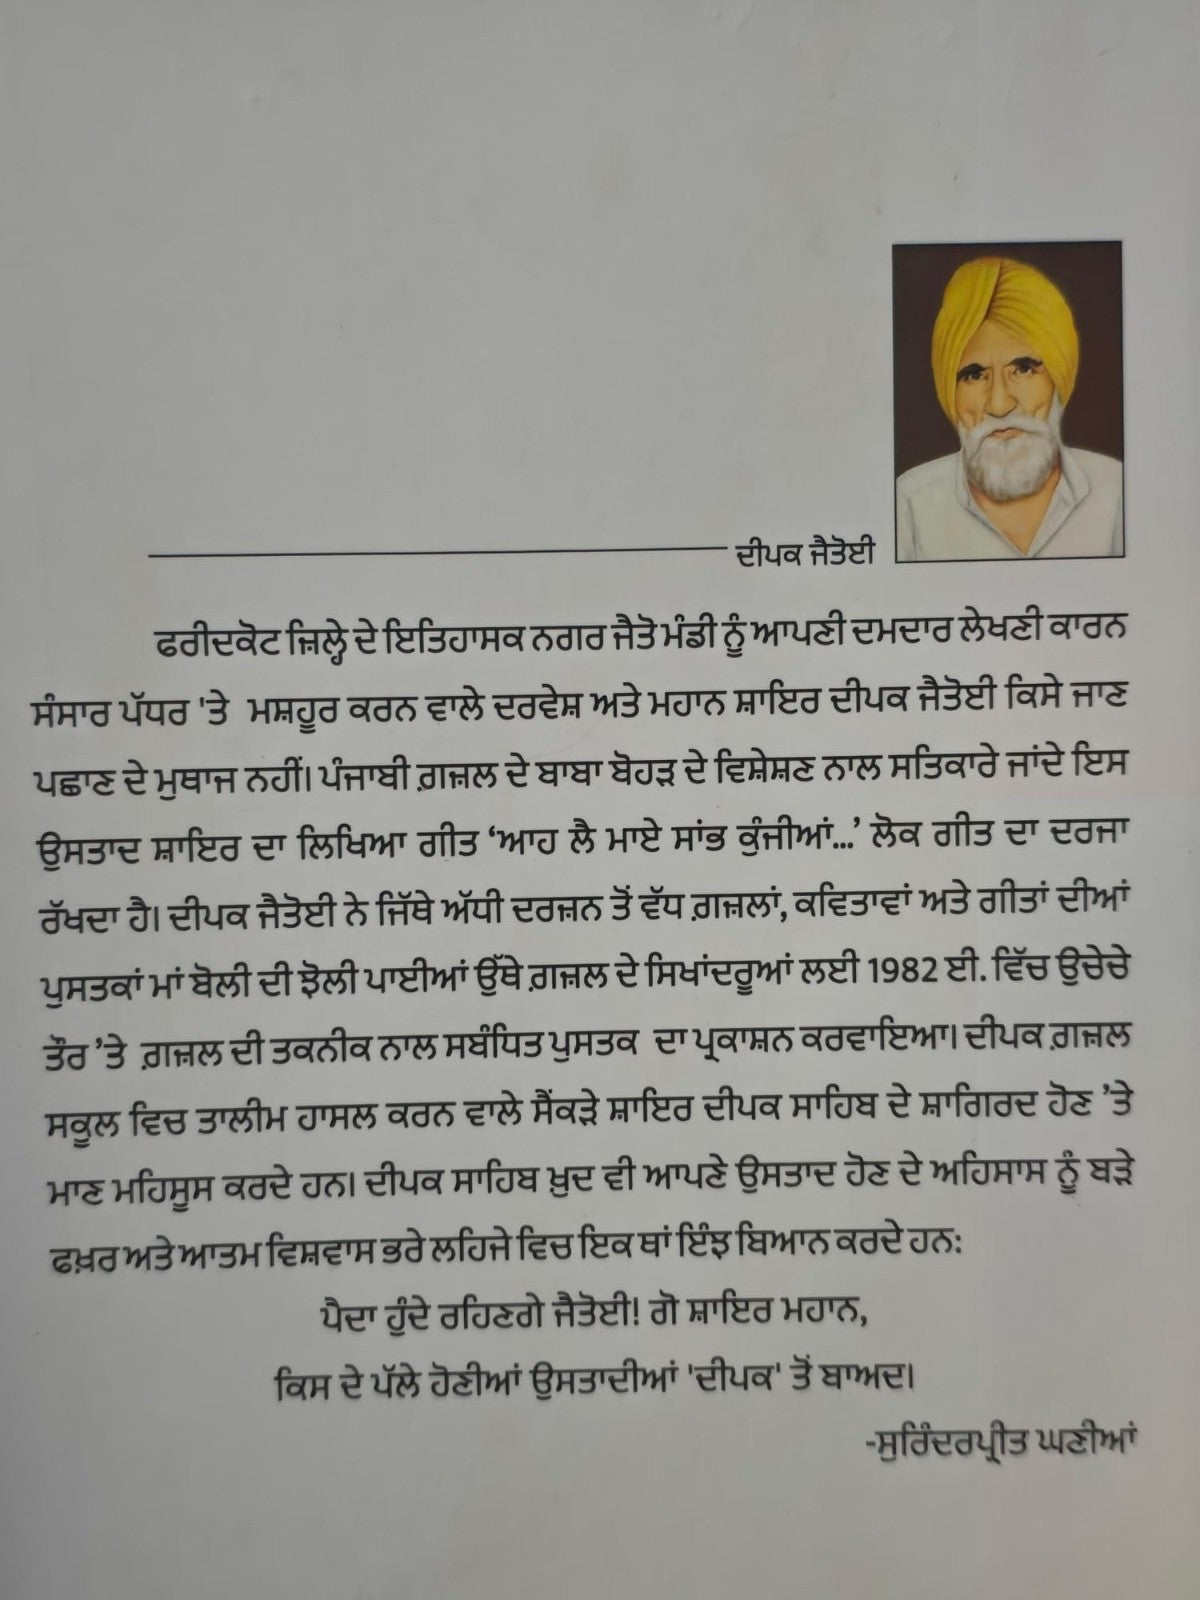 ਦੀਪਕ ਜੈਤੋਈ
ਫਰੀਦਕੋਟ ਜ਼ਿਲ੍ਹੇ ਦੇ ਇਤਿਹਾਸਕ ਨਗਰ ਜੈਤੋ ਮੰਡੀ ਨੂੰ ਆਪਣੀ ਦਮਦਾਰ ਲੇਖਣੀ ਕਾਰਨ
ਸੰਸਾਰ ਪੱਧਰ 'ਤੇ ਮਸ਼ਹੂਰ ਕਰਨ ਵਾਲੇ ਦਰਵੇਸ਼ ਅਤੇ ਮਹਾਨ ਸ਼ਾਇਰ ਦੀਪਕ ਜੈਤੋਈ ਕਿਸੇ ਜਾਣ
ਪਛਾਣ ਦੇ ਮੁਥਾਜ ਨਹੀਂ। ਪੰਜਾਬੀ ਗ਼ਜ਼ਲ ਦੇ ਬਾਬਾ ਬੋਹੜ ਦੇ ਵਿਸ਼ੇਸ਼ਣ ਨਾਲ ਸਤਿਕਾਰੇ ਜਾਂਦੇ ਇਸ
ਉਸਤਾਦ ਸ਼ਾਇਰ ਦਾ ਲਿਖਿਆ ਗੀਤ ‘ਆਹ ਲੈ ਮਾਏ ਸਾਂਭ ਕੁੰਜੀਆਂ...’ ਲੋਕ ਗੀਤ ਦਾ ਦਰਜਾ
ਰੱਖਦਾ ਹੈ। ਦੀਪਕ ਜੈਤੋਈ ਨੇ ਜਿੱਥੇ ਅੱਧੀ ਦਰਜ਼ਨ ਤੋਂ ਵੱਧ ਗ਼ਜ਼ਲਾਂ, ਕਵਿਤਾਵਾਂ ਅਤੇ ਗੀਤਾਂ ਦੀਆਂ
ਪੁਸਤਕਾਂ ਮਾਂ ਬੋਲੀ ਦੀ ਝੋਲੀ ਪਾਈਆਂ ਉੱਥੇ ਗ਼ਜ਼ਲ ਦੇ ਸਿਖਾਂਦਰੂਆਂ ਲਈ 1982 ਈ. ਵਿੱਚ ਉਚੇਚੇ
ਤੌਰ ’ਤੇ ਗ਼ਜ਼ਲ ਦੀ ਤਕਨੀਕ ਨਾਲ ਸਬੰਧਿਤ ਪੁਸਤਕ ਦਾ ਪ੍ਰਕਾਸ਼ਨ ਕਰਵਾਇਆ। ਦੀਪਕ ਗ਼ਜ਼ਲ
ਸਕੂਲ ਵਿਚ ਤਾਲੀਮ ਹਾਸਲ ਕਰਨ ਵਾਲੇ ਸੈਂਕੜੇ ਸ਼ਾਇਰ ਦੀਪਕ ਸਾਹਿਬ ਦੇ ਸ਼ਾਗਿਰਦ ਹੋਣ ’ਤੇ
ਮਾਣ ਮਹਿਸੂਸ ਕਰਦੇ ਹਨ। ਦੀਪਕ ਸਾਹਿਬ ਖ਼ੁਦ ਵੀ ਆਪਣੇ ਉਸਤਾਦ ਹੋਣ ਦੇ ਅਹਿਸਾਸ ਨੂੰ ਬੜੇ
ਫਖ਼ਰ ਅਤੇ ਆਤਮ ਵਿਸ਼ਵਾਸ ਭਰੇ ਲਹਿਜੇ ਵਿਚ ਇਕ ਥਾਂ ਇੰਝ ਬਿਆਨ ਕਰਦੇ ਹਨ:
ਪੈਦਾ ਹੁੰਦੇ ਰਹਿਣਗੇ ਜੈਤੋਈ! ਗੋ ਸ਼ਾਇਰ ਮਹਾਨ,
ਕਿਸ ਦੇ ਪੱਲੇ ਹੋਣੀਆਂ ਉਸਤਾਦੀਆਂ 'ਦੀਪਕ' ਤੋਂ ਬਾਅਦ।
-ਸੁਰਿੰਦਰਪ੍ਰੀਤ ਘਣੀਆਂ